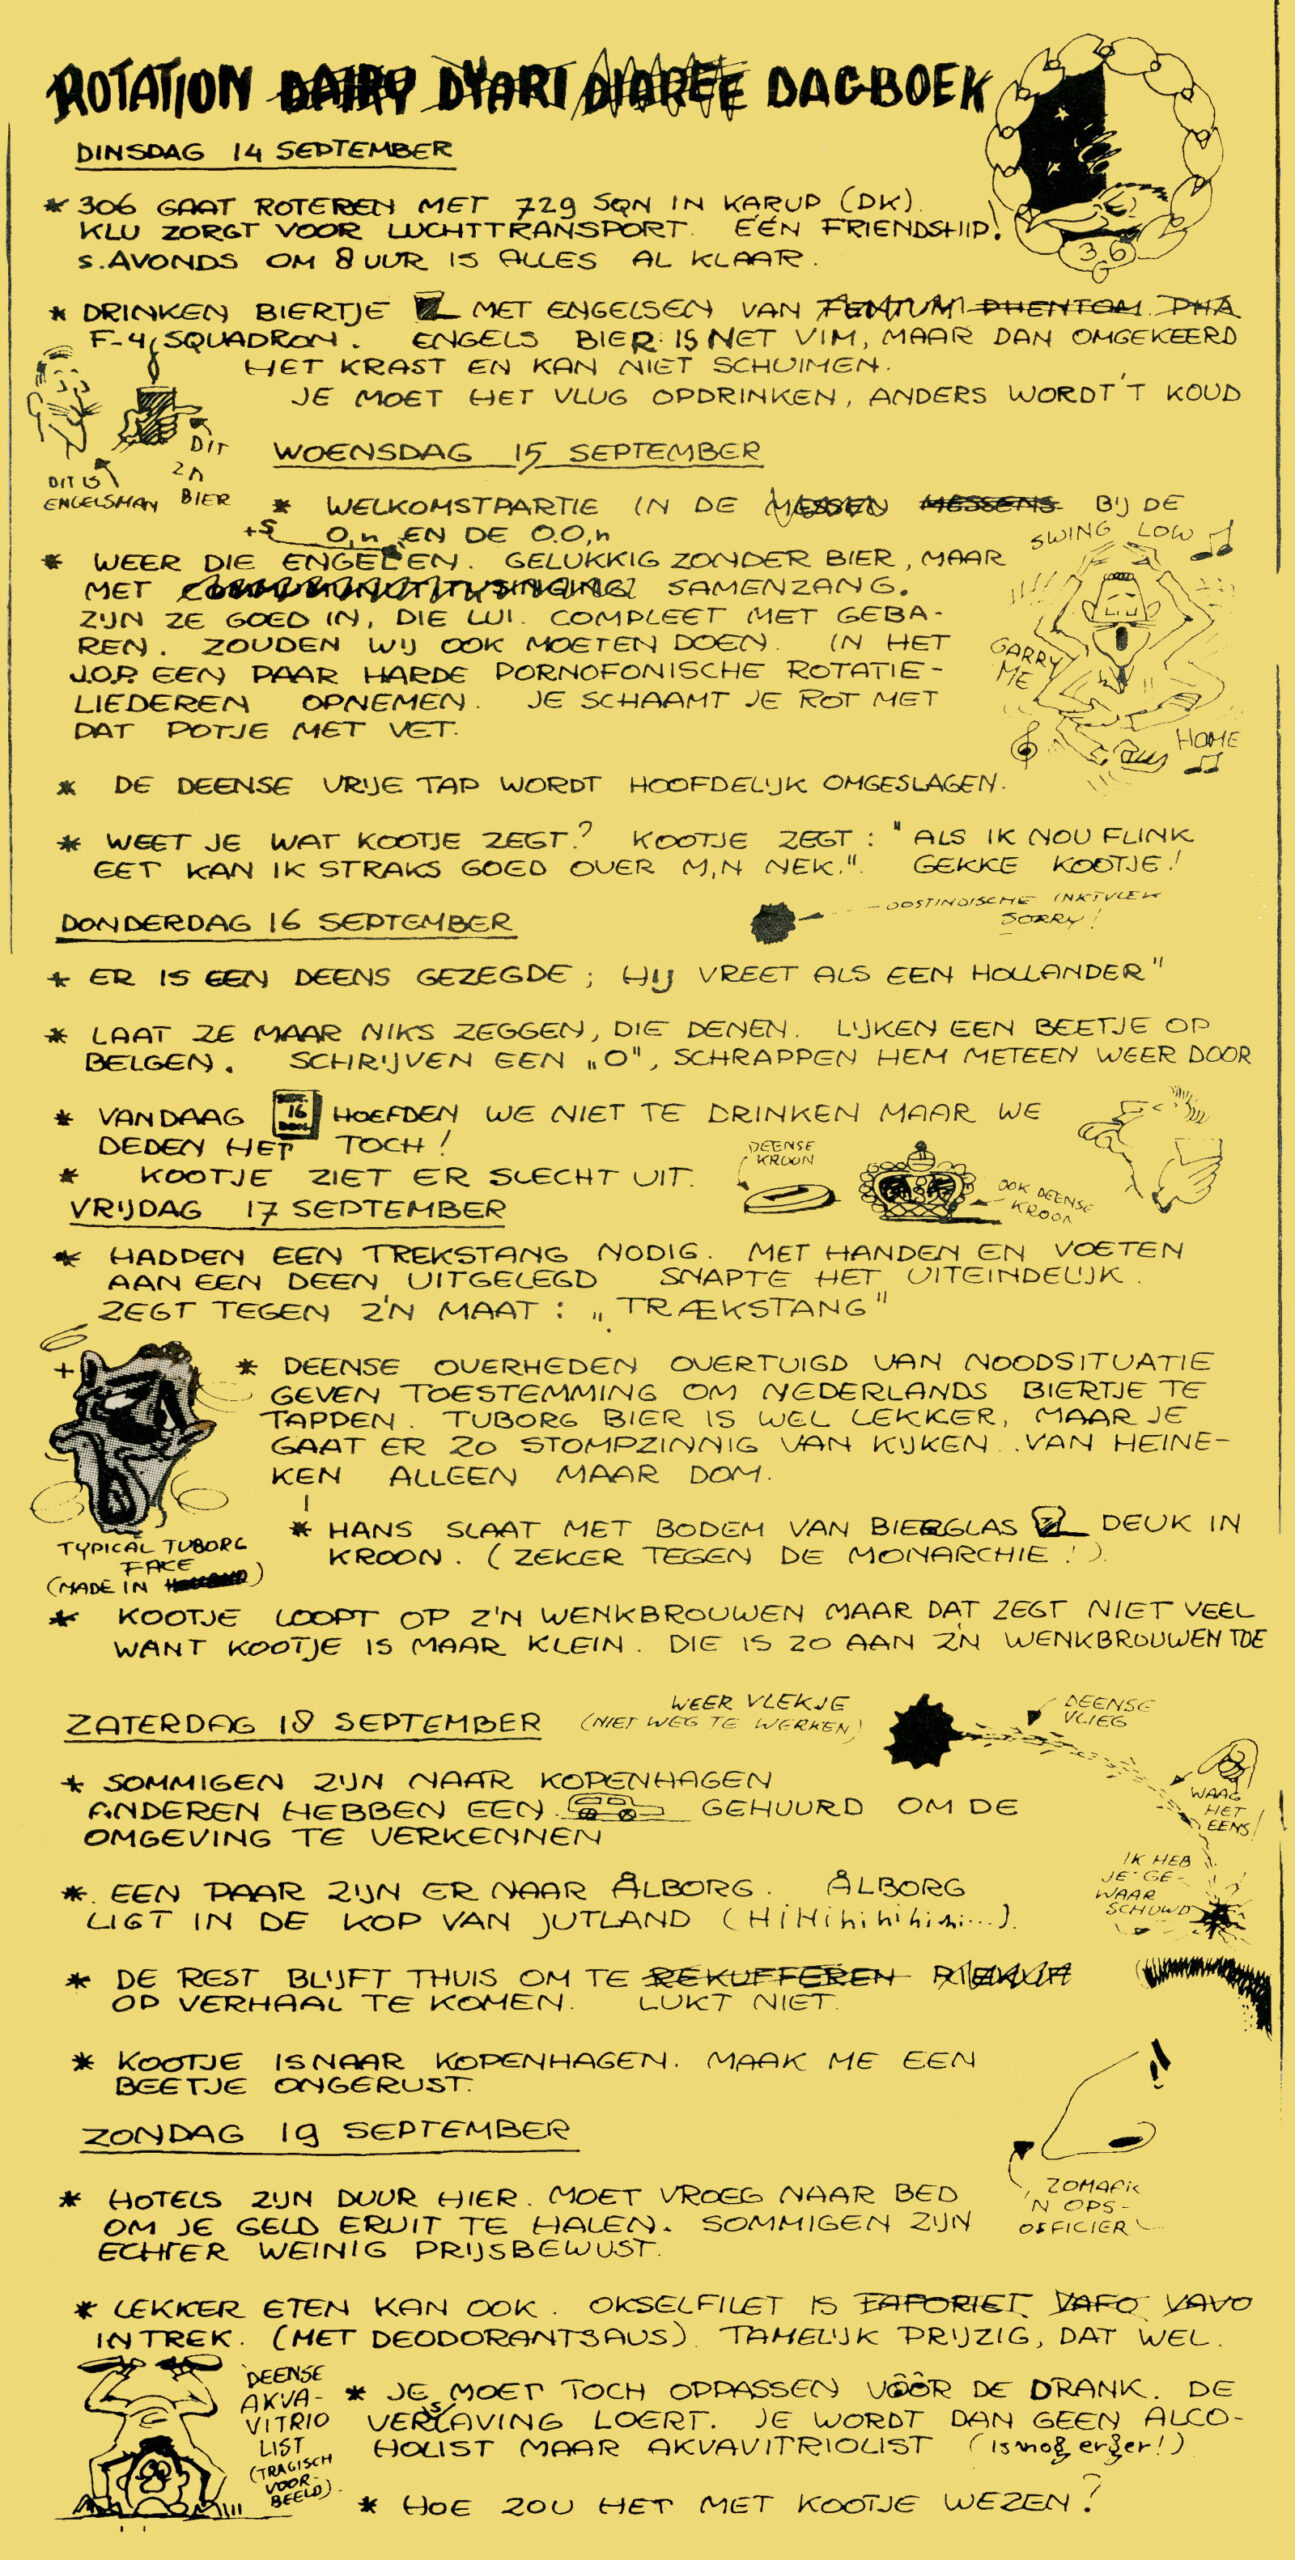 ROTATION DAIRY DYARI DIAREE DAGBOEK
DINSDAG 14 SEPTEMBER
* 306 GAAT ROTEREN MET 729 SQN IN KARUP (DK).
KLU ZORGT VOOR LUCHTTRANSPORT. EÉN FRIENDSHIP!
s.AVONDS OM 8 UUR IS ALLES AL KLAAR.
306
* DRINKEN BIERTJE MET ENGELSEN VAN FEMTUM PHENTOM PHA
F-4 SQUADRON. ENGELS BIER IS NET VIM, MAAR DAN OMGEKEERD
HET KRAST EN KAN NIET SCHUIMEN.
JE MOET HET VLUG OPDRINKEN, ANDERS WORDT'T KOUD
DIT IS
ENGELSMAN
DIT
ZN
BIER
WOENSDAG 15 SEPTEMBER
* WELKOMSTPARTIE IN DE MESSEN MESSENS BIJ DE
O,n EN DE O.O,n
* WEER DIE ENGELEN. GELUKKIG ZONDER BIER, MAAR
+S
MET COMMUNITYSINGING SAMENZANG.
ZIJN ZE GOED IN, DIE LUI. COMPLEET MET GEBA-
REN. ZOUDEN WIJ OOK MOETEN DOEN. IN HET
J.O.P. EEN PAAR HARDE PORNOFONISCHE ROTATIE-
LIEDEREN OPNEMEN. JE SCHAAMT JE ROT MET
DAT POTJE MET VET.
SWING LOW
GARRY
ME
HOME
* DE DEENSE VRIJE TAP WORDT HOOFDELIJK OMGESLAGEN.
* WEET JE WAT KOOTJE ZEGT? KOOTJE ZEGT: "ALS IK NOU FLINK
EET KAN IK STRAKS GOED OVER M,N NEK.". GEKKE KOOTJE!
OOSTINDISCHE INKTVLEK
SORRY!
DONDERDAG 16 SEPTEMBER
* ER IS EEN DEENS GEZEGDE; HIJ VREET ALS EEN HOLLANDER"
* LAAT ZE MAAR NIKS ZEGGEN, DIE DENEN. LIJKEN EEN BEETJE OP
BELGEN. SCHRIJVEN EEN „O", SCHRAPPEN HEM METEEN WEER DOOR
* VANDAAG 16 HOEFDEN WE NIET TE DRINKEN MAAR WE
DEDEN HET TOCH!
* KOOTJE ZIET ER SLECHT UIT.
DEENSE
KROON
OOK DEENSE
KROON
VRIJDAG 17 SEPTEMBER
* HADDEN EEN TREKSTANG NODIG. MET HANDEN EN VOETEN
AAN EEN DEEN UITGELEGD SNAPTE HET UITEINDELIJK.
ZEGT TEGEN Z'N MAAT: „TRÆKSTANG"
* DEENSE OVERHEDEN OVERTUIGD VAN NOODSITUATIE
GEVEN TOESTEMMING OM NEDERLANDS BIERTJE TE
TAPPEN. TUBORG BIER IS WEL LEKKER, MAAR JE
GAAT ER ZO STOMPZINNIG VAN KIJKEN. .VAN HEINE-
KEN ALLEEN MAAR DOM.
TYPICAL TUBORG
FACE
(MADE IN HOLLAND)
* HANS SLAAT MET BODEM VAN BIERGLAS DEUK IN
KROON. (ZEKER TEGEN DE MONARCHIE!).
* KOOTJE LOOPT OP Z'N WENKBROUWEN MAAR DAT ZEGT NIET VEEL
WANT KOOTJE IS MAAR KLEIN. DIE IS ZO AAN Z'N WENKBROUWEN TOE
ZATERDAG 18 SEPTEMBER
WEER VLEKJE
(NIET WEG TE WERKEN)
DEENSE
VLIEG
WAAG
HET
EENS!
IK HEB
JE GE-
WAAR
SCHUWD
* SOMMIGEN ZIJN NAAR KOPENHAGEN
ANDEREN HEBBEN EEN GEHUURD OM DE
OMGEVING TE VERKENNEN
* EEN PAAR ZIJN ER NAAR ÅLBORG. ÅLBORG
LIGT IN DE KOP VAN JUTLAND (HiHihihihihi...).
* DE REST BLIJFT THUIS OM TE REKUFFEREN
OP VERHAAL TE KOMEN. LUKT NIET.
* KOOTJE IS NAAR KOPENHAGEN. MAAK ME EEN
BEETJE ONGERUST.
ZONDAG 19 SEPTEMBER
ZOMAAR
'N OPS-
OFFICIER
* HOTELS ZIJN DUUR HIER. MOET VROEG NAAR BED
OM JE GELD ERUIT TE HALEN. SOMMIGEN ZIJN
ECHTER WEINIG PRIJSBEWUST.
* LEKKER ETEN KAN OOK. OKSELFILET IS FAFORIET VAFO VAVO
IN TREK. (MET DEODORANTSAUS). TAMELIJK PRIJZIG, DAT WEL.
DEENSE
AKVA-
VITRIO
LIST
(TRAGISCH
VOOR-
BEELD).
* JE MOET TOCH OPPASSEN VÔÔR DE DRANK. DE
VERSLAVING LOERT. JE WORDT DAN GEEN ALCO-
HOLIST MAAR AKVAVITRIOLIST (is nog erger!)
* HOE ZOU HET MET KOOTJE WEZEN?